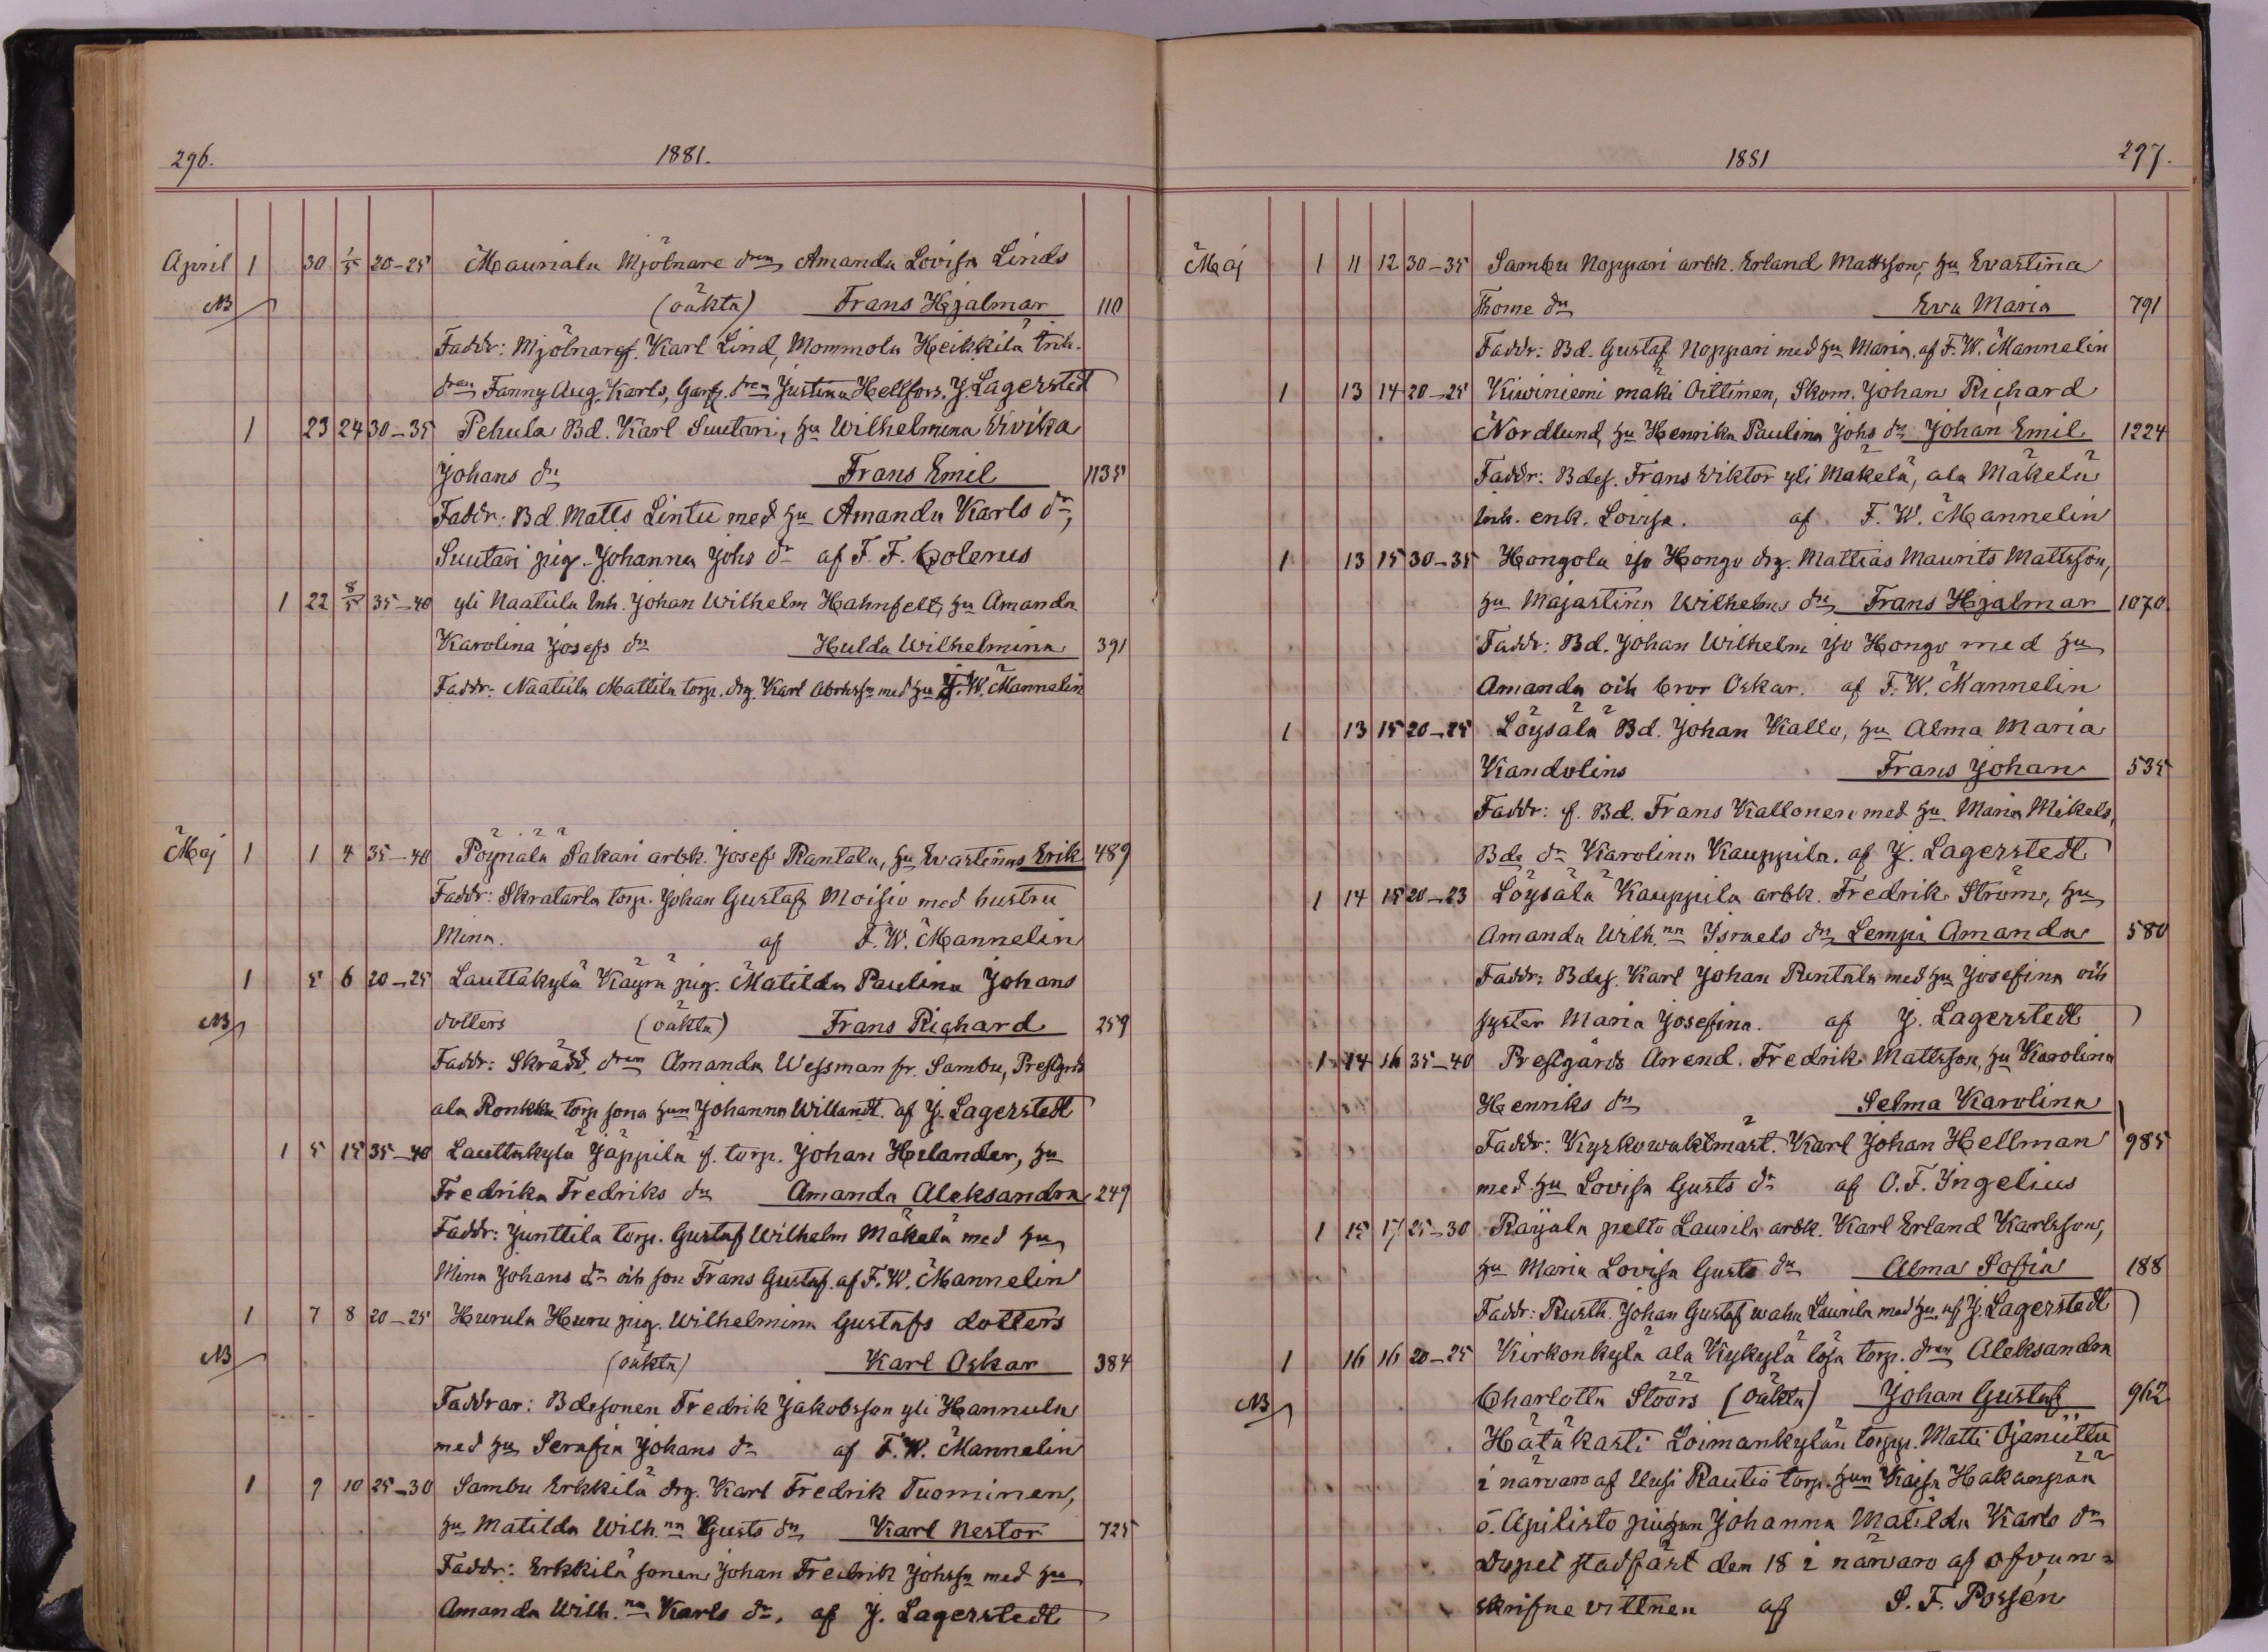 296. 1881.
April 1 30 1/5 20-25 Maunala Mjölnare drn Amanda Lovisa Linds
NB (oäkta) Frans Hjalmar 110
Faddr: Mjölnaref. Karl Lind, Mommola Heikkilä Inh.
drn Fanny Aug. Karls, Garf. drn Justina Hellfors. J. Lagerstedt
1 23 24 30-35 Pehula Bd. Karl Suutari, hu Wilhelmina Wivika
Johans dr Frans Emil 1135
Faddr: Bd. Matts Lintu med hu Amanda Karls dr,
Suutari pig. Johanna Johs dr af F. F. Colerus
1 22 8/5 35-40 yli Naatula Inh. Johan Wilhelm Hahnfelt, hu Amanda
Karolina Josefs dr Hulda Wilhelmina 391
Faddr: Naatula Mattila torp. drg. Karl med hu F. W. Mannelin
Maj 1 1 4 35-40 Pöyriälä Sakari arbk. Josef Rantala, hu Evastinas Erik 489
Faddr: Skralarla torp. Johan Gustaf Moisio med hustru
Mina. af F. W. Mannelin
1 5 6 20-25 Lauttakylä Käyrä pig. Matilda Paulina Johans
NB dotters (oäkta) Frans Richard 259
Faddr: Skrädd. drn Amanda Wessman fr. Sambu, Prestgrds
ala Ronkka torp sona hun Johanna Willandt. af J. Lagerstedt
1 5 15 35-40 Lauttakylä Jäppilä f. torp. Johan Helander, hu
Fredrika Fredriks dr Amanda Aleksandra 249
Faddr: Junttila torp. Gustaf Wilhelm Mäkelä med hu
Mina Johans dr och son Frans Gustaf. af F. W. Mannelin
1 7 8 20-25 Hurula Huru pig. Wilhelmina Gustafs dotters
NB (oäkta) Karl Oskar 384
Faddrar: Bdesonen Fredrik Jakobsson yli Hannula
med hu Serafia Johans dr af F. W. Mannelin
1 9 10 25-30 Sambu Erkkilä drg. Karl Fredrik Tuominen,
hu Matilda Wilh.na Gusts dr Karl Nestor 725
Faddr: Erkkilä sonen Johan Fredrik Johsson med hu
Amanda Wilh.na Karls dr. af J. Lagerstedt
1881 297.
Maj 1 11 12 30-35 Sambu Noppari arbk. Erland Mattsson, hu Evastina
Thome dr Eva Maria 791
Faddr: Bd. Gustaf Noppari med hu Maria. af F. W. Mannelin
1 13 14 20-25 Kiviniemi mäki Oittinen, Skom. Johan Richard
Nordlund, hu Henrika Paulina Johs dr Johan Emil 1224
Faddr: Bdes. Frans Viktor yli Mäkelä, ala Mäkelä
Inh. enk. Lovisa. af F. W. Mannelin
1 13 15 30-35 Hongola iso Hongo drg. Mattias Maurits Mattsson,
hu Majastina Wilhelms dr Frans Hjalmar 1070
Faddr: Bd. Johan Wilhelm iso Hongo med hu
Amanda och bror Oskar. af F. W. Mannelin
1 13 15 20-25 Löysälä Bd. Johan Kallo, hu Alma Maria
Kandolins Frans Johan 535
Faddr: f. Bd. Frans Kallonen med hu Maria Mikels,
Bde dr Karolina Kauppila. af J. Lagerstedt
1 14 15 20-23 Löysälä Kauppila arbk. Fredrik Ström, hu
Amanda Wilh.na Israels dr Lempi Amanda 580
Faddr: Bdes. Karl Johan Rintala med hu Josefina och
syster Maria Josefina. af J. Lagerstedt
1 14 16 35-40 Prestgårds Arrend. Fredrik Mattsson, hu Karolina
Henriks dr Selma Karolina
Faddr: Kyrkowaktmäst. Karl Johan Hellman 985
med hu Lovisa Gusts dr af O. F. Ingelius
1 15 17 25-30 Raijala pelto Laurila arbk. Karl Erland Karlsson,
hu Maria Lovisa Gusts dr Alma Sofia 188
Faddr: Rusth. Johan Gustaf wahn Laurila med hu. af J. Lagerstedt
1 16 16 20-25 Kirkonkylä ala Kykylä torp. drn Aleksandra
NB Charlotta Stöörs (oäkta) Johan Gustaf 962
Hätäkasti Loimankylän torpp. Matti Ojaniittu
i närvaro af Uusi Rautio torp. hun Kaisa Hakanpää
o. Apilisto Johanna Matilda Karls dr
Dopet stadfäst den 18 i närvaro af ofvan=
skrifne vittnen af S. F. Possén